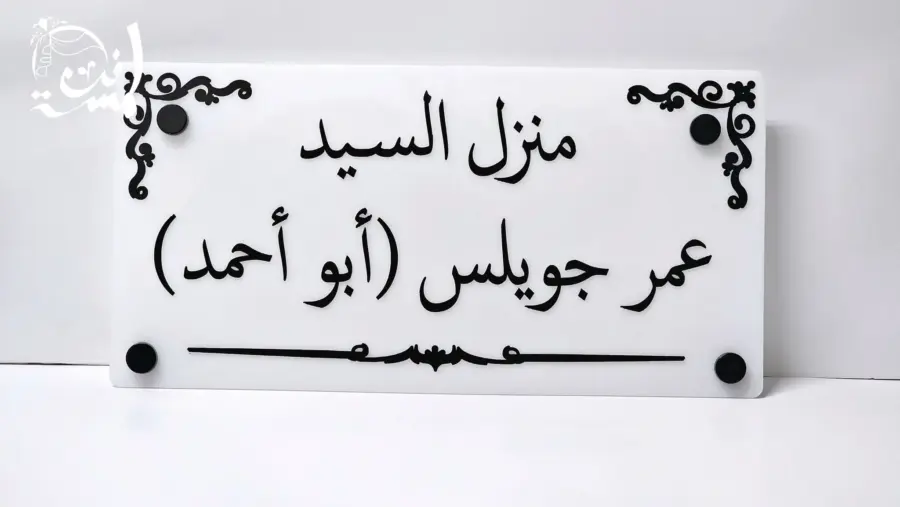 منزل السيد
عمر جويلس (أبو أحمد)